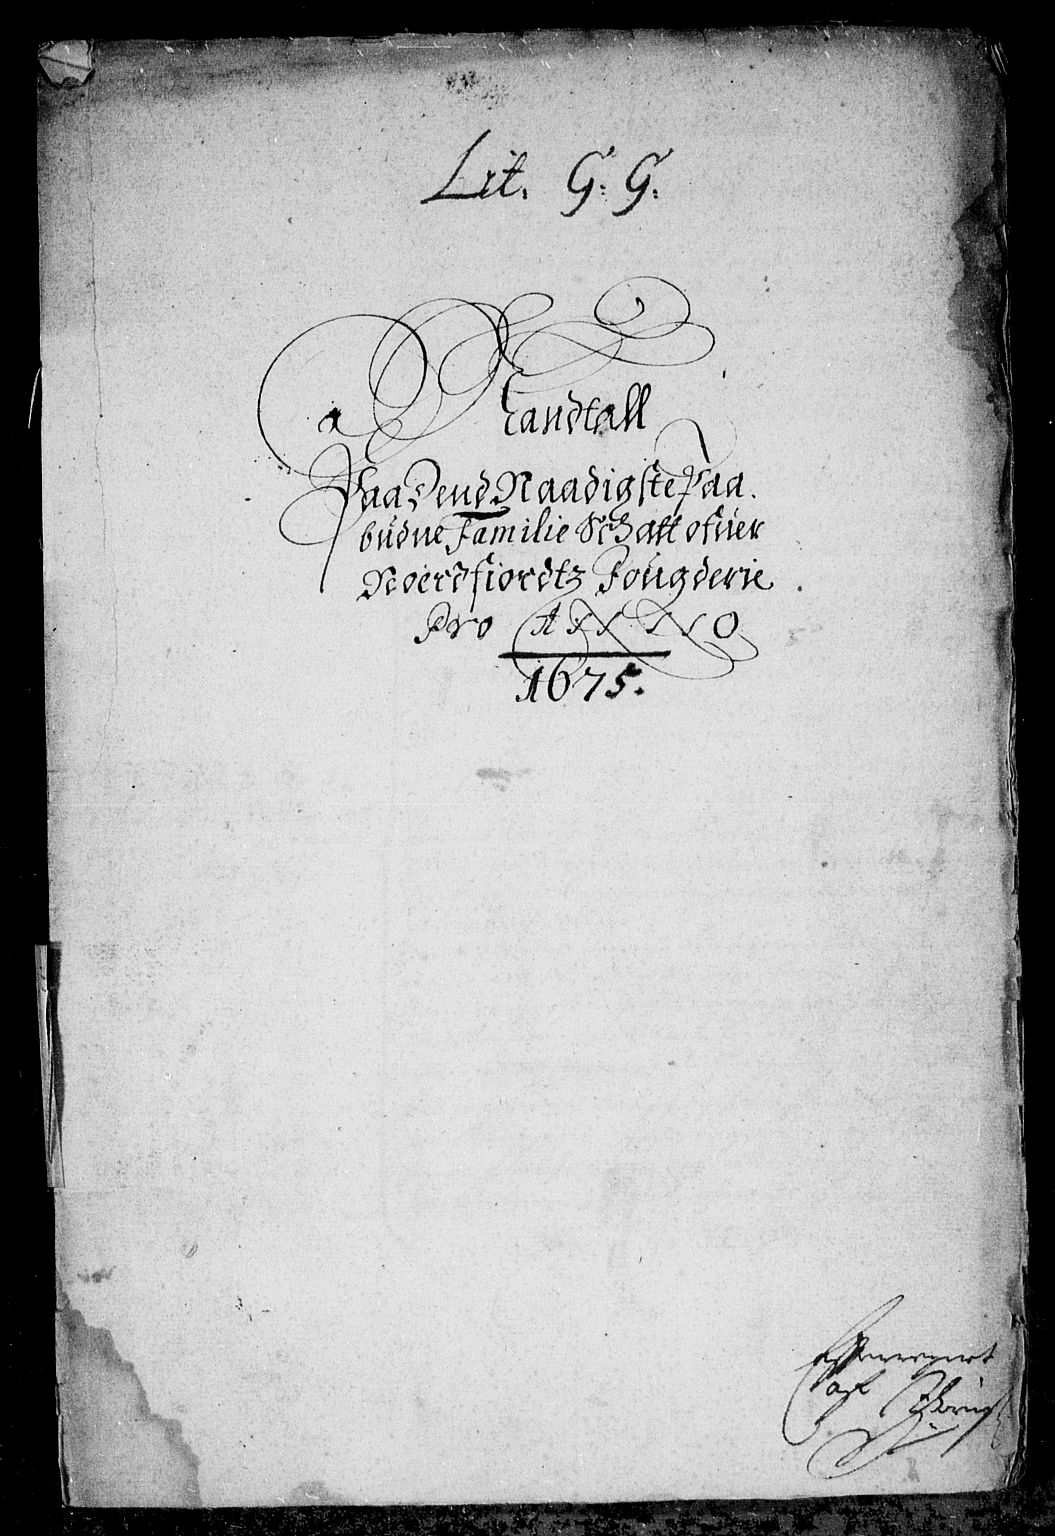 Lit. G. G.
Mandtall
Paa Dend Naadigste Paa
budne Familie Schatt ofuer
Noerdfiordtz Fougderie
Pro ANNO
1675.